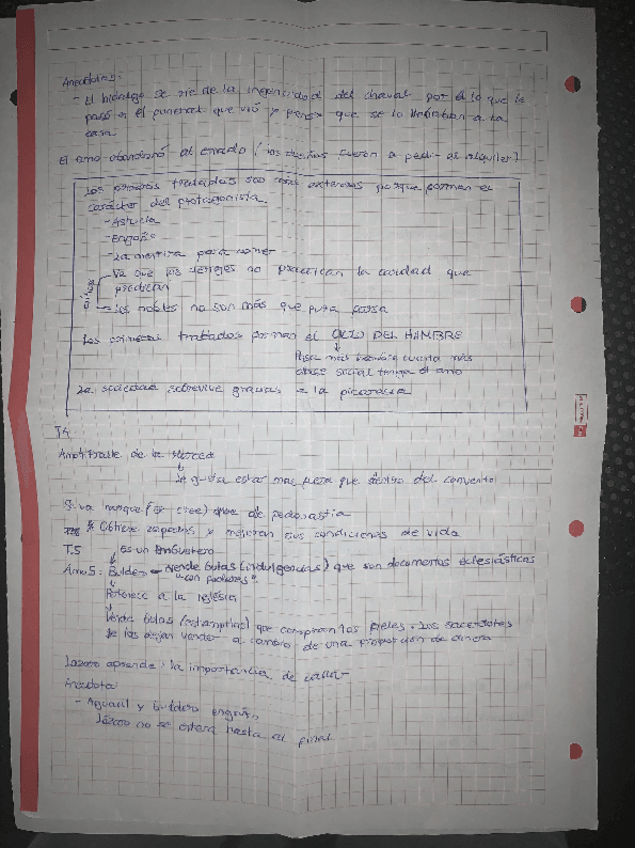 Anécdotas:
- El hidalgo se ríe de la ingenuidad del chaval por él lo que le
pasó a él funeral que vió y pensó que se lo llevaban a la
casa.
El amo abandonó al criado (los dueños fueron a pedir el alquiler)
Los primeros tratados son más extensos porque forman el
carácter del protagonista.
- Astucia
- Engaño
- La mentira para comer
- Ya que los clérigos no practican la caridad que
predican
- los nobles no son más que pura farsa
Los primeros tratados forman el CICLO DEL HAMBRE
Pasa más hambre cuanto más
clase social tenga el amo
La sociedad sobrevive gracias a la picaresca
T.4
Amo: fraile de la Merced
le gusta estar más fuera que dentro del convento
Se va aunque (se cree) que de pederastia
* Obtiene zapatos y mejoran sus condiciones de vida
T.5 Es un embustero
Amo 5: Buldero - vende bulas (indulgencias) que son documentos eclesiásticos
"con poderes".
Pertenece a la iglesia
Vende bulas (estampitas) que compran los fieles. Los sacerdotes
se las dejan vender a cambio de una proporción de dinero
Lázaro aprende: la importancia de callar
Anécdota
- Alguacil y buldero engaño,
lázaro no se entera hasta el final